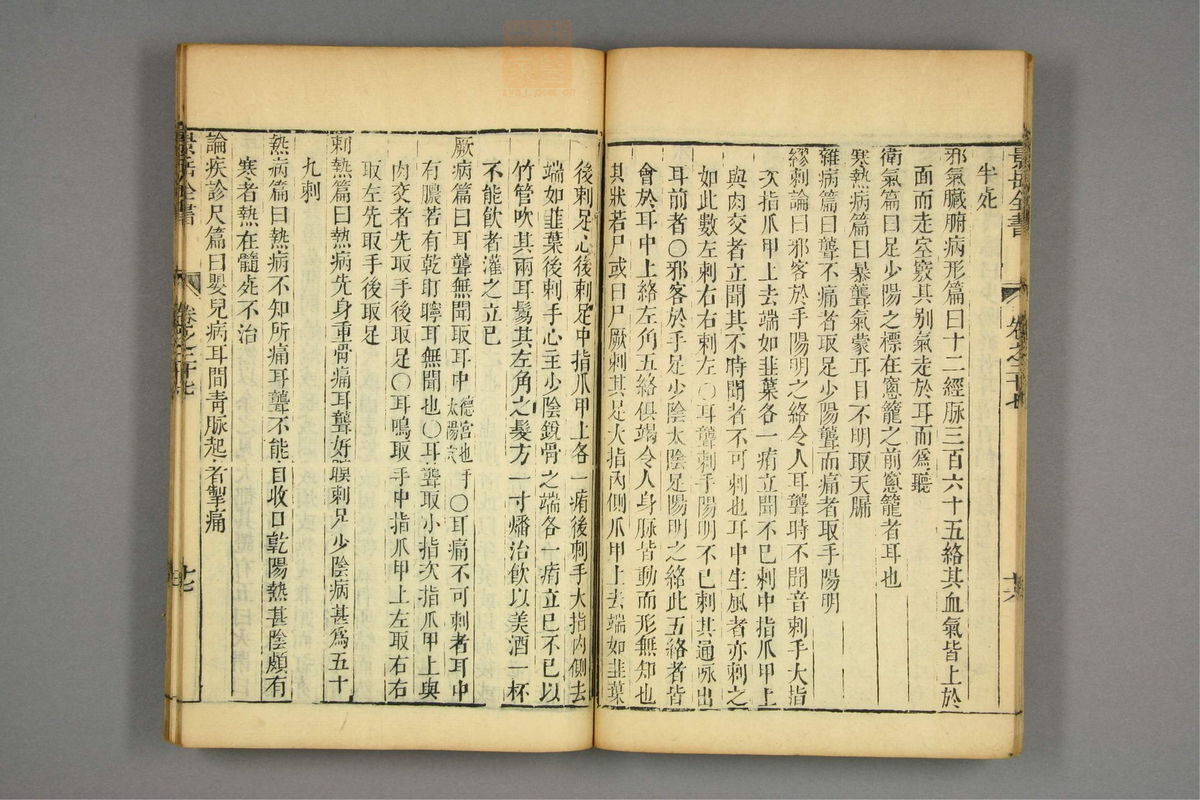 景岳全書
卷之二十七
廿六
半死
邪氣臟腑病形篇曰十二經脉三百六十五絡其血氣皆上於
面而走空竅其别氣走於耳而爲聽
衛氣篇曰足少陽之標在窻籠之前窻籠者耳也
寒熱病篇曰暴聾氣蒙耳目不明取天牖
雜病篇曰聾不痛者取足少陽聾而痛者取手陽明
繆刺論曰邪客於手陽明之絡令人耳聾時不聞音刺手大指
次指爪甲上去端如韭葉各一痏立聞不已刺中指爪甲上
與肉交者立聞其不時聞者不可刺也耳中生風者亦刺之
如此數左刺右右刺左〇耳聾刺手陽明不已刺其通脉出
耳前者〇邪客於手足少陰太陰足陽明之絡此五絡者皆
會於耳中上絡左角五絡俱竭令人身脉皆動而形無知也
其狀若尸或曰尸厥刺其足大指內側爪甲上去端如韭葉
後刺足心後刺足中指爪甲上各一痏後刺手大指內側去
端如韭葉後刺手心主少陰銳骨之端各一痏立已不已以
竹管吹其兩耳鬄其左角之髮方一寸燔治飲以美酒一杯
不能飲者灌之立已
厥病篇曰耳聾無聞取耳中聽宮也太陽穴〇耳痛不可刺者耳中
有膿若有乾耵聹耳無聞也〇耳聾取小指次指爪甲上與
肉交者先取手後取足〇耳鳴取手中指爪甲上左取右右
取左先取手後取足
刺熱篇曰熱病先身重骨痛耳聾好瞑刺足少陰病甚爲五十
九刺
熱病篇曰熱病不知所痛耳聾不能自收口乾陽熱甚陰頗有
寒者熱在髓死不治
論疾診尺篇曰嬰兒病耳間青脉起者掣痛
景岳全書
卷之二十七
廿七